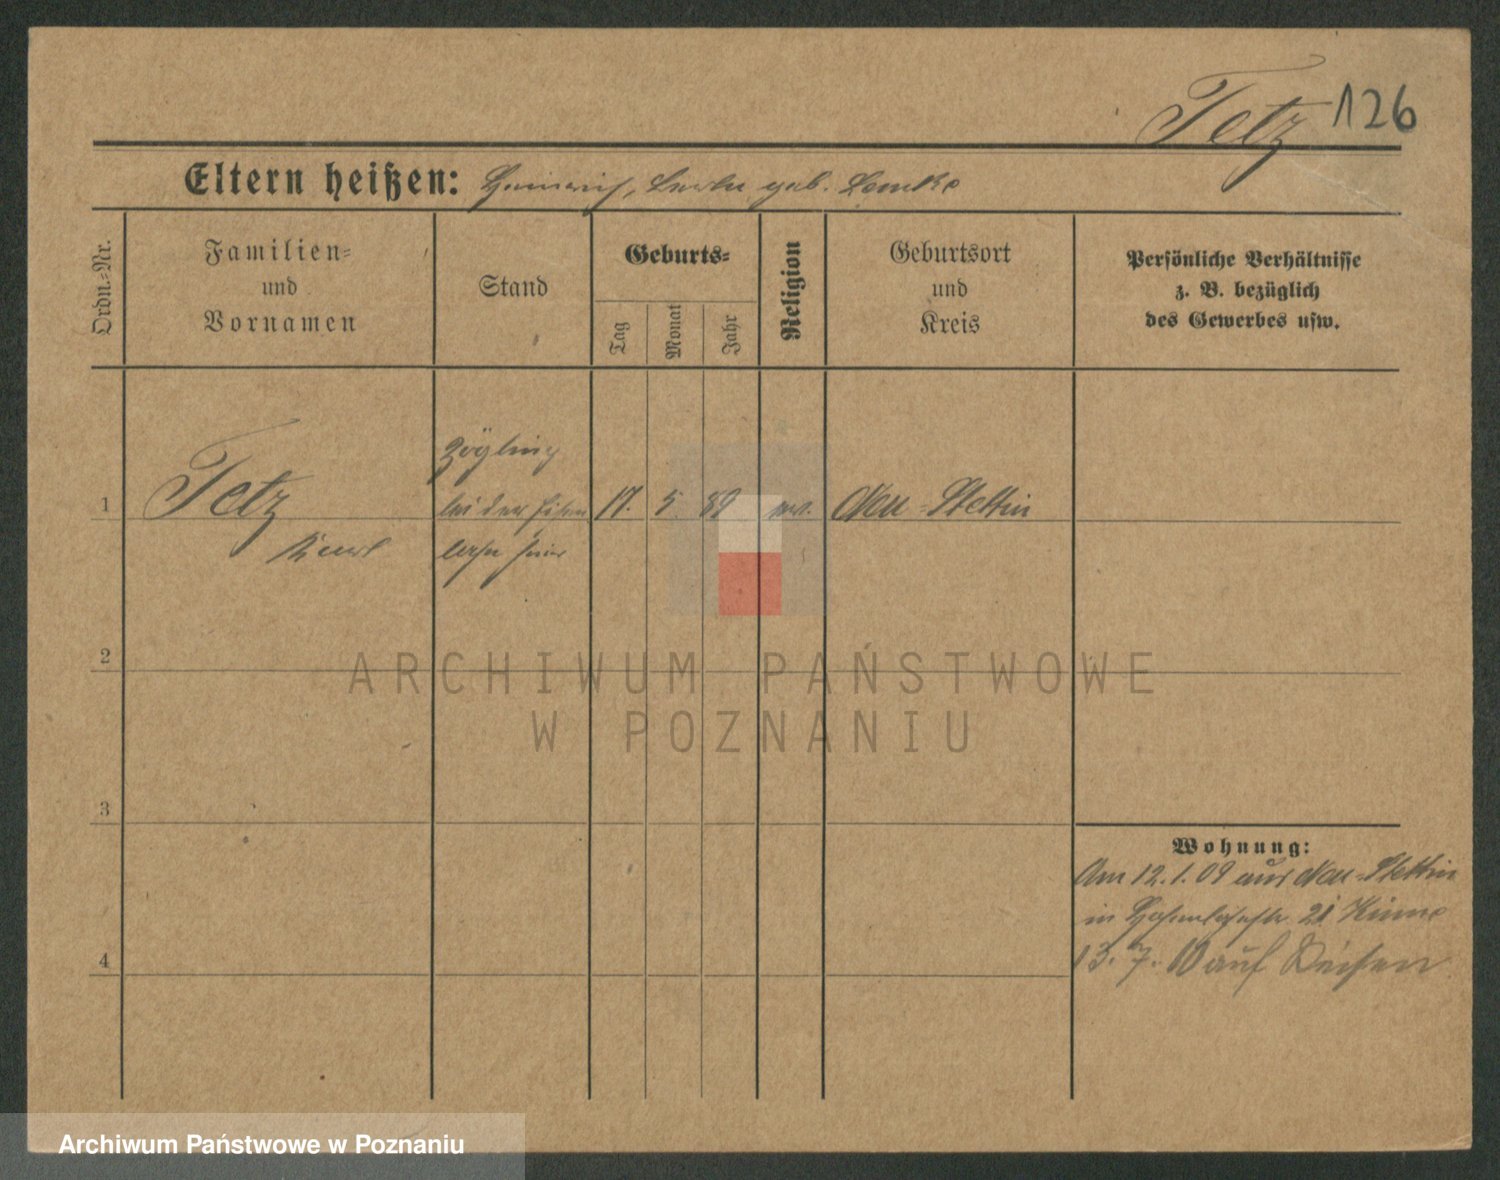 Tetz 126
Eltern heißen: Heinrich, geb. Lemke
Ordn.-Nr.
Familien-
und
Vornamen
Stand
Geburts-
Tag
Monat
Jahr
Religion
Geburtsort
und
Kreis
Persönliche Verhältnisse
z. B. bezüglich
des Gewerbes usw.
Zögling
1 Tetz bei der Eisen 17. 5 89 ev. Neu-Stettin
Kurt bahn hier
2
ARCHIWUM PAŃSTWOWE
W POZNANIU
3
Wohnung:
Am 12.1.09 aus Neu-Stettin
in 21
4
13. 7. 10 auf Reisen
Archiwum Państwowe w Poznaniu